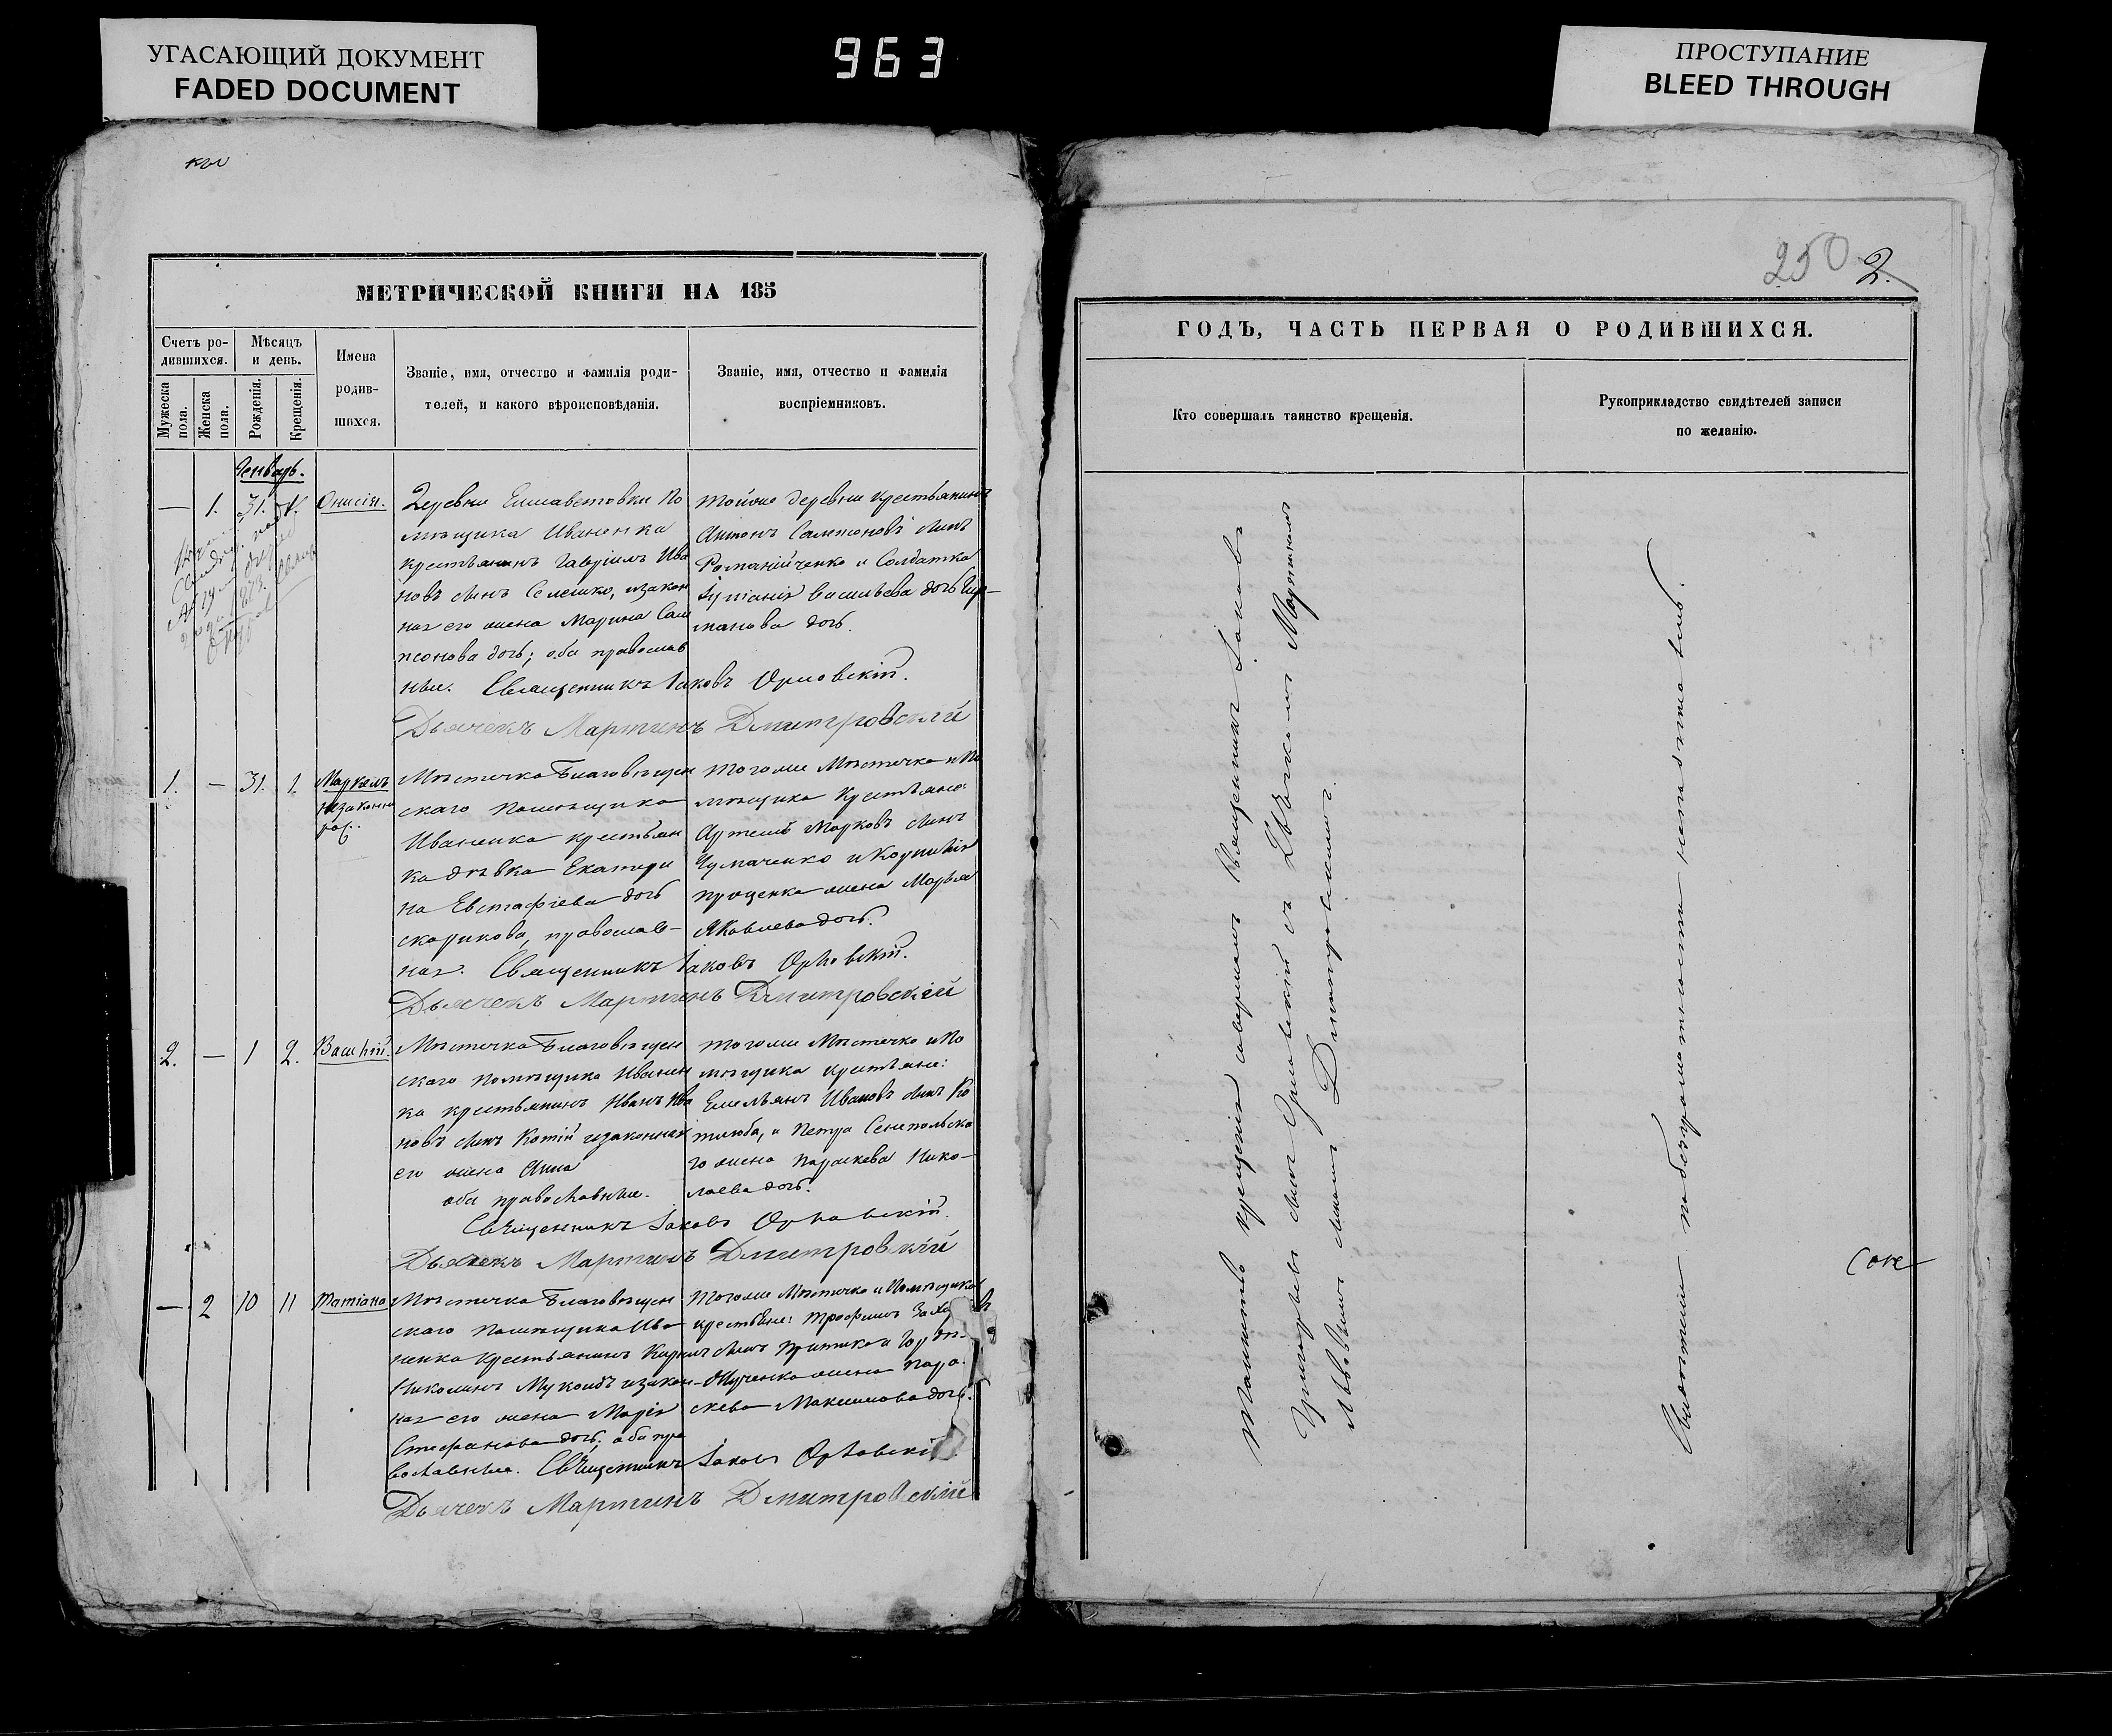 УГАСАЮЩИЙ ДОКУМЕНТ
FADED DOCUMENT
963
ПРОСТУПАНИЕ
BLEED THROUGH
МЕТРИЧЕСКОЙ КНИГИ НА 185
Счетъ ро-
дившихся.
Мѣсяцъ
и день.
Мужеска
пола.
Женска
пола.
Рожденія.
Крещенія.
Имена
родив-
шихся.
Званіе, имя, отчество и фамилія роди-
телей, и какого вѣроисповѣданія.
Званіе, имя, отчество и фамилія
воспріемниковъ.
Генварь.
— 1. 31. Онисія.
Деревни Елисаветовки По
мѣщика Иваненка
крестьянинъ Гавріилъ Ива
новъ сынъ Семешко, изакон
ная его жена Марина Сам
псонова дочь; оба православ
ные. Священникъ Іаковъ Орловскій.
Дьячекъ Мартинъ Дмитровскій
тойже деревни крестьянинъ
Антонъ Сампсоновъ сынъ
Романійченко и Солдатка
Васильева дочь
манова дочь.
1. — 31. 1. Маркелъ
незаконно
рож.
Мѣстечка Благовѣщен
скаго помѣщика
Иваненка крестьян
ка дѣвка Екатери
на Евстафіева дочь
скорикова, православ-
ная. Священникъ Іаковъ Орловскій.
Дьячекъ Мартинъ Дмитровскій
тогоже Мѣстечка и По
мѣщика крестьяне:
Артемъ Марковъ сынъ
Чумаченко и Корнилія
проценка жена Марья
Яковлева дочь.
2. — 1 2. Василій.
Мѣстечка Благовѣщен
скаго помѣщика Иванен
ка крестьянинъ Иванъ Ива
новъ сынъ Котій изаконная
его жена Анна
оба православные.
Священникъ Іаковъ Орловскій.
Дьячекъ Мартинъ Дмитровскій
тогоже Мѣстечка и По
мѣщика крестьяне:
Емельянъ Ивановъ сынъ Ко
тлюба, и Петра Сенопольска
го жена Параскева Нико-
лаева дочь.
— 2 10 11 Татіана
Мѣстечка Благовѣщен
скаго помѣщика Ива
ненка крестьянинъ
Николинъ Мукоидъ изакон-
ная его жена Марія
Стефанова дочь; оба пра
вославные. Священникъ Іаковъ Орловскій.
Дьячекъ Мартинъ Дмитровскій
Тогоже Мѣстечка и Помѣщика
крестьяне: Трофимъ
сынъ Притика и
жена Пара-
скева Максимова дочь.
250 2.
ГОДЪ, ЧАСТЬ ПЕРВАЯ О РОДИВШИХСЯ.
Кто совершалъ таинство крещенія.
Рукоприкладство свидѣтелей записи
по желанію.
Таинство крещенія совершалъ Священникъ Іаковъ
Григорьевъ сынъ Орловскій съ Дьячкомъ Мартиномъ
Львовымъ сыномъ Дмитровскимъ.
Свидѣтели по безграмотности неподписались.